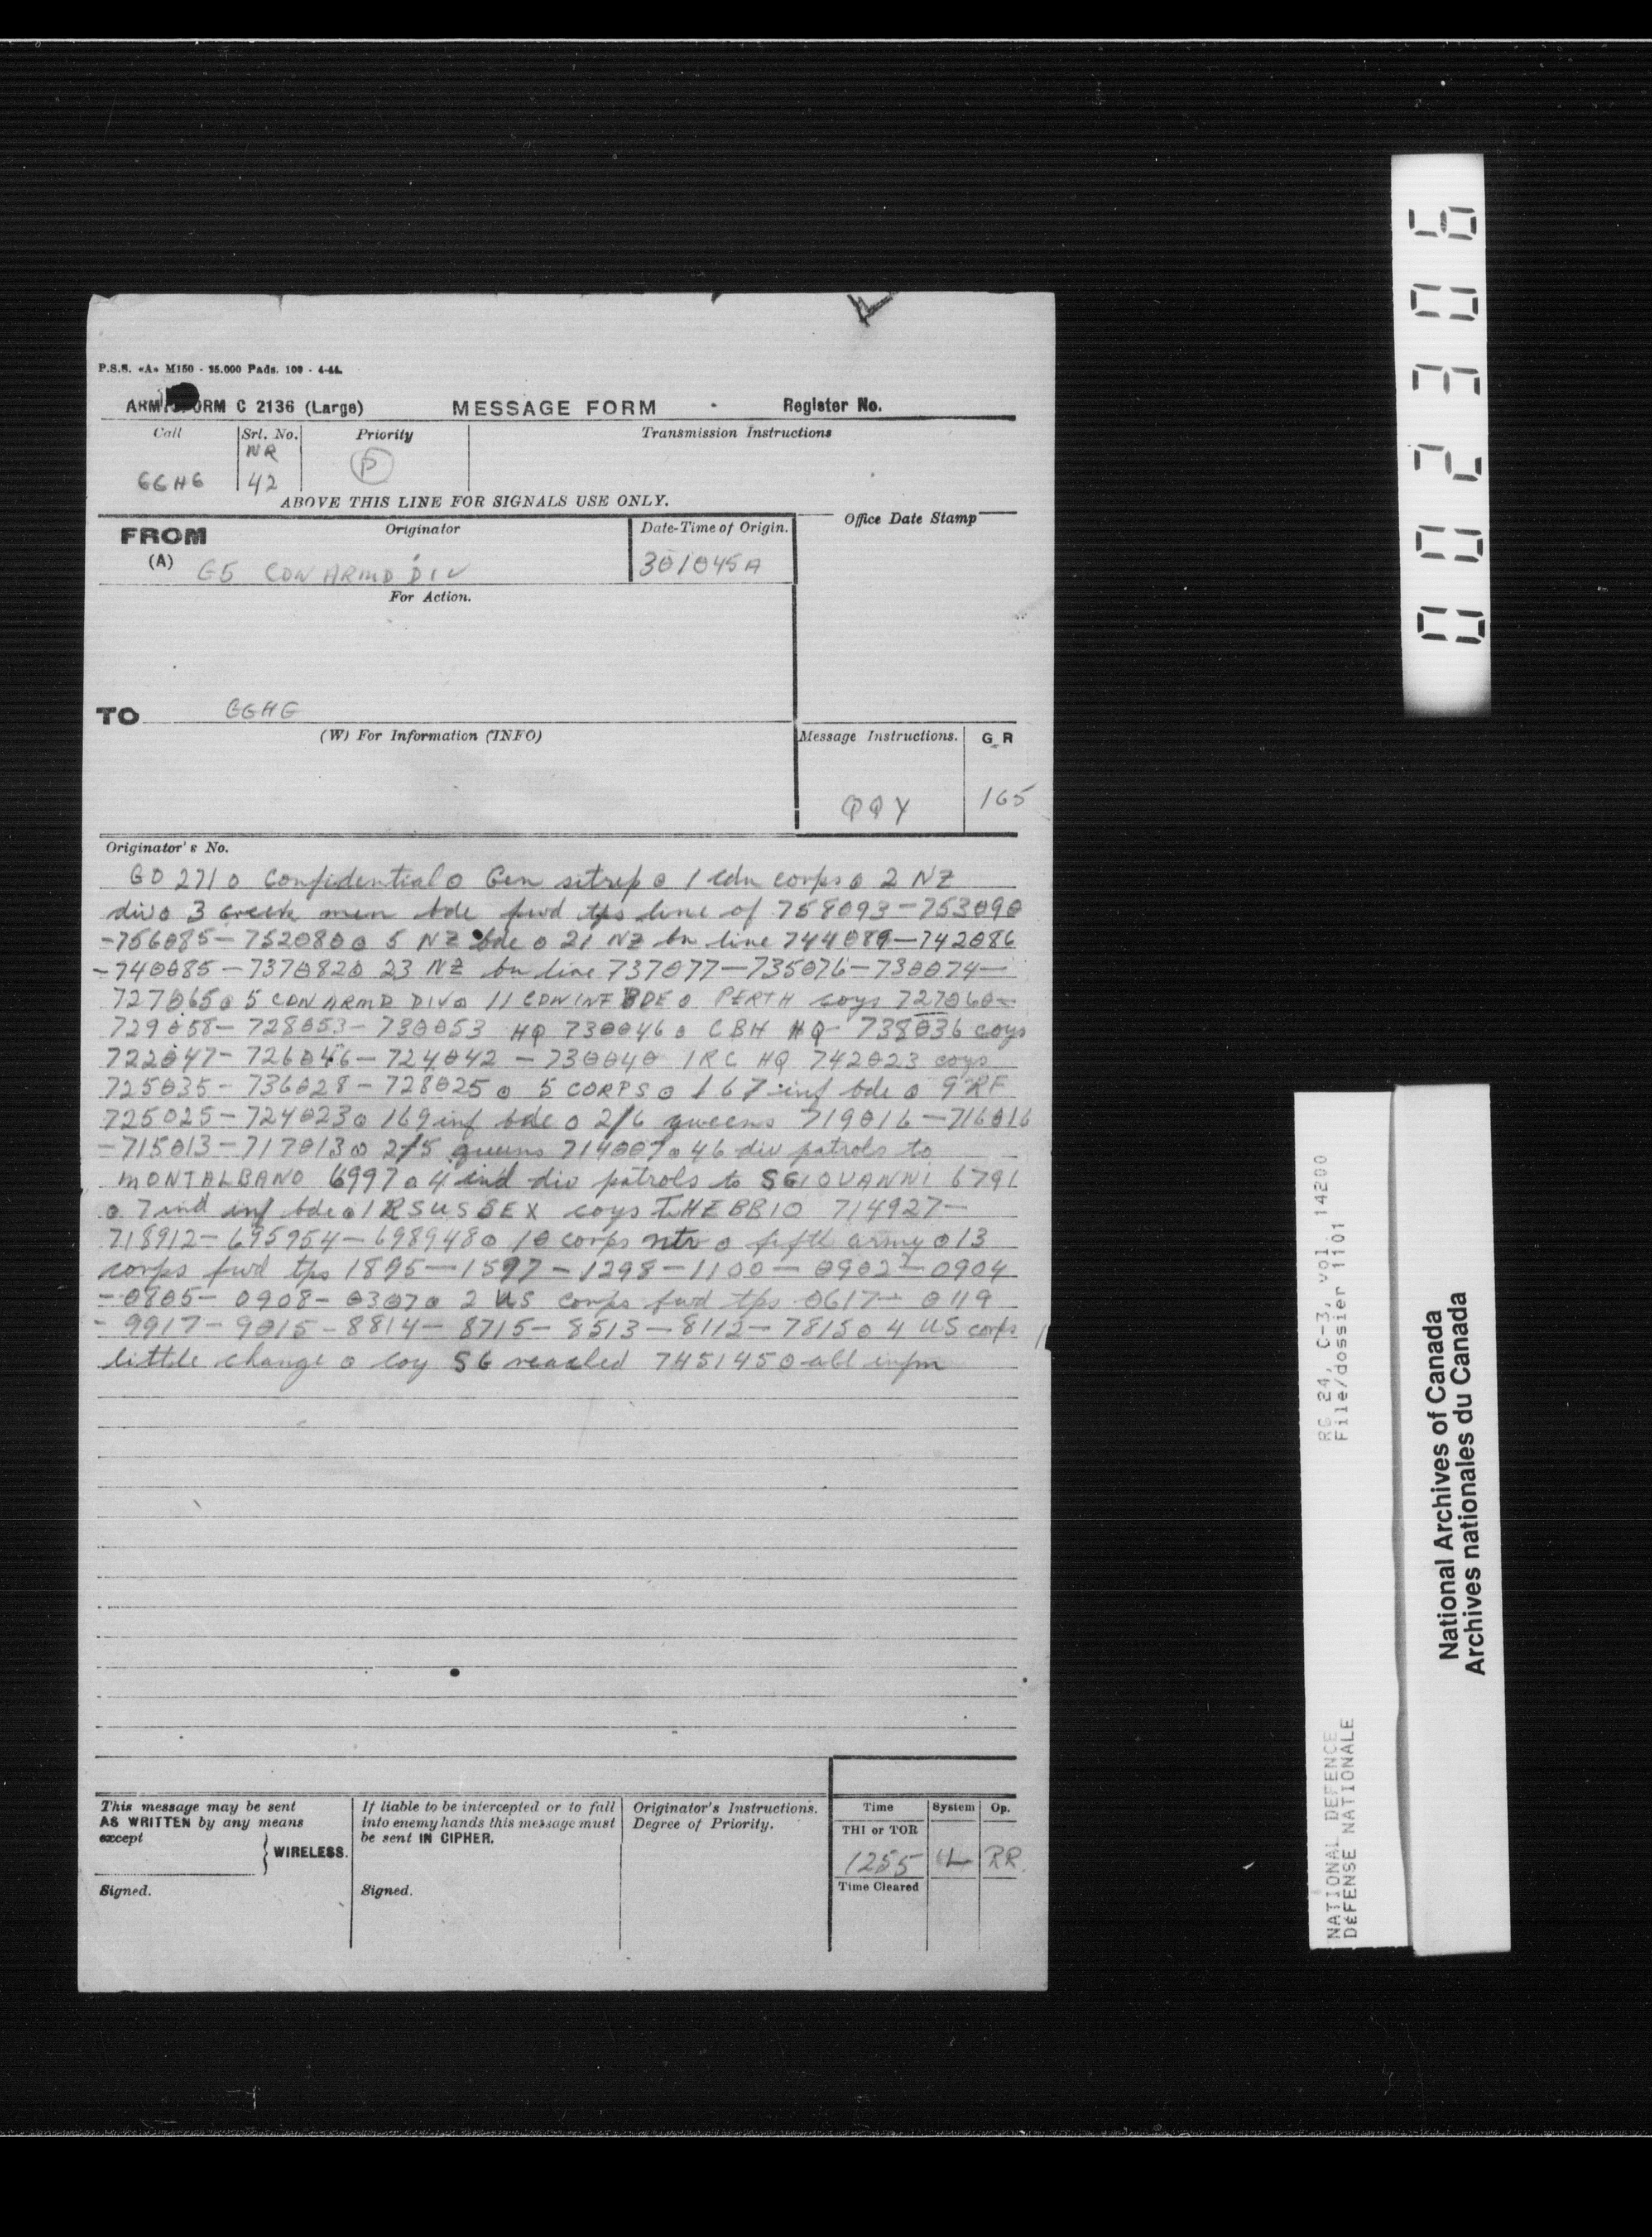 P.S.S. «A» M150 - 25.000 Pads. 100 - 4-44.
ARMY FORM C 2136 (Large) MESSAGE FORM Register No.
Call Srl. No. Priority Transmission Instructions
NR
GGHG 42 P
ABOVE THIS LINE FOR SIGNALS USE ONLY.
FROM Originator Date-Time of Origin. Office Date Stamp
(A) G5 CDN ARMD DIV 301045A
For Action.
TO GGHG
(W) For Information (INFO) Message Instructions. G R
QQY 165
Originator's No.
GO 271 o Confidential o Gen sitrep o 1 cdn corps o 2 NZ
div o 3 Greek mtn bde fwd tps line of 758093-753090
-756085-752080 o 5 NZ bde o 21 NZ bn line 744089-742086
-740085-737082 o 23 NZ bn line 737077-735076-730074-
727065 o 5 CDN ARMD DIV o 11 CDN INF BDE o PERTH coys 727060-
729058-728053-730053 HQ 730046 o CBH HQ 738036 coys
722047-726046-724042-730040 IRC HQ 742023 coys
725035-736028-728025 o 5 CORPS o 167 inf bde o 9 RF
725025-724023 o 169 inf bde o 2/6 queens 719016-716016
-715013-717013 o 2/5 queens 714007 o 46 div patrols to
MONTALBANO 6997 o 4 ind div patrols to S GIOVANNI 6791
o 7 ind inf bde o 1 R SUSSEX coys TREBBIO 714927-
718912-695954-698948 o 10 corps ntr o fifth army o 13
corps fwd tps 1895-1597-1298-1100-0902-0904
-0805-0908-0307 o 2 US corps fwd tps 0617-0119
-9917-9015-8814-8715-8513-8112-7815 o 4 US corps
little change o coy SG reached 745145 o all infm
This message may be sent AS WRITTEN by any means except WIRELESS.
If liable to be intercepted or to fall into enemy hands this message must be sent IN CIPHER.
Originator's Instructions. Degree of Priority.
Time System Op.
THI or TOR
1255 RR.
Time Cleared
Signed. Signed.
002306
RG 24, C-3, vol. 14200
File/dossier 1101
NATIONAL DEFENCE
DÉFENSE NATIONALE
National Archives of Canada
Archives nationales du Canada